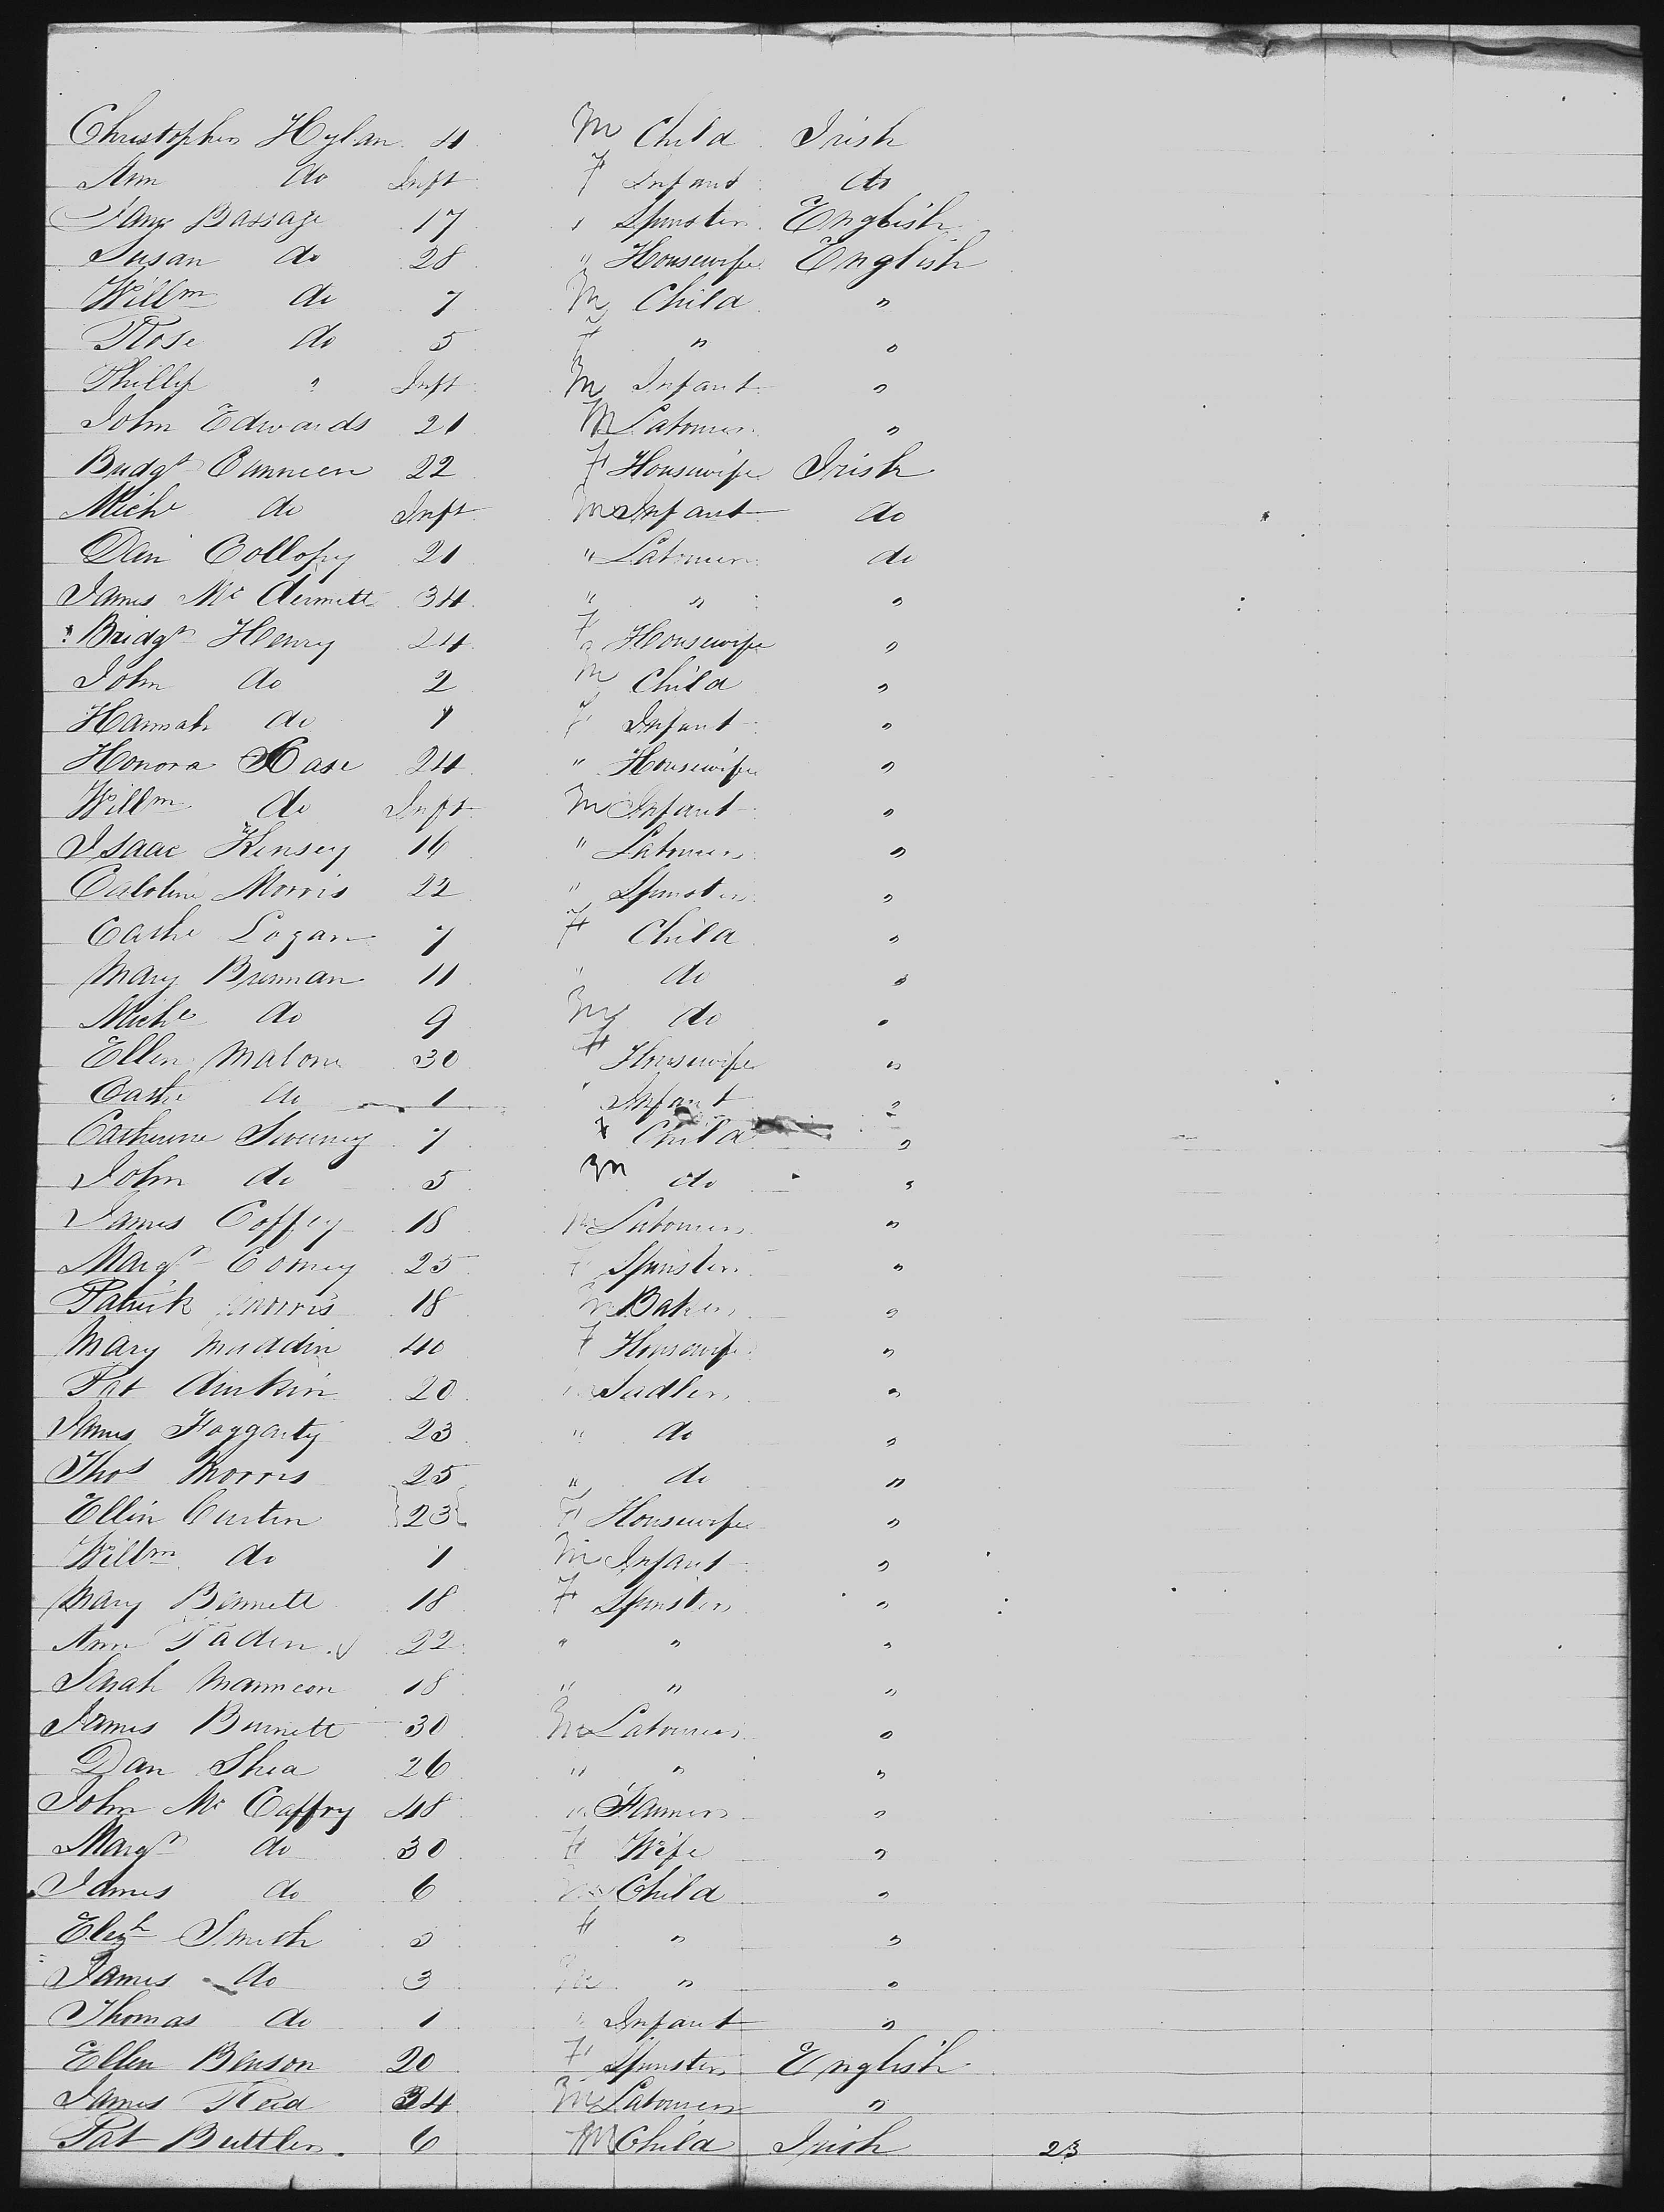 Christopher Hylan 4 M Child Irish
Ann do Inft F Infant do
Jane Bassage 17 " Spinster English
Susan do 28 " Housewife English
Willm do 7 M Child "
Rose do 5 F " "
Phillip " Inft M Infant "
John Edwards 21 M Labourer "
Bridgt Cunneen 22 F Housewife Irish
Michl do Inft M Infant do
Dan Collopy 21 " Labourer do
James Mc dermitt 34 " " "
Bridgt Henry 24 F Housewife "
John do 2 M Child "
Hannah do 1 F Infant "
Honora Case 24 " Housewife "
Willm do Inft M Infant "
Isaac Kensey 16 " Labourer "
Caroline Morris 22 " Spinster "
Cathe Logan 7 F Child "
Mary Brennan 11 " do "
Michl do 9 M do "
Ellen Malone 30 F Housewife "
Cathe do 1 " Infant "
Catherine Sweeney 7 F Child "
John do 5 M do "
James Coffey 18 M Labourer "
Margt Comey 25 F Spinster "
Patrick Morris 18 M Baker "
Mary Maddin 40 F Housewife "
Pat durkin 20 M Sadler "
James Foggarty 23 " do "
Thos Morris 25 " do "
Ellin Curtin 23 F Housewife "
Willm do 1 M Infant "
Mary Bennett 18 F Spinster "
Ann Faden 22 " " "
Sarah Manneon 18 " " "
James Burnett 30 M Labourer "
Dan Shea 26 " " "
John Mc Caffry 48 " Farmer "
Margt do 30 F Wife "
James do 6 M Child "
Elizh Smith 5 F " "
James do 3 M " "
Thomas do 1 " Infant "
Ellen Benson 20 F Spinster English
James Reed 34 M Labourer "
Pat Buttler 6 M Child Irish 23